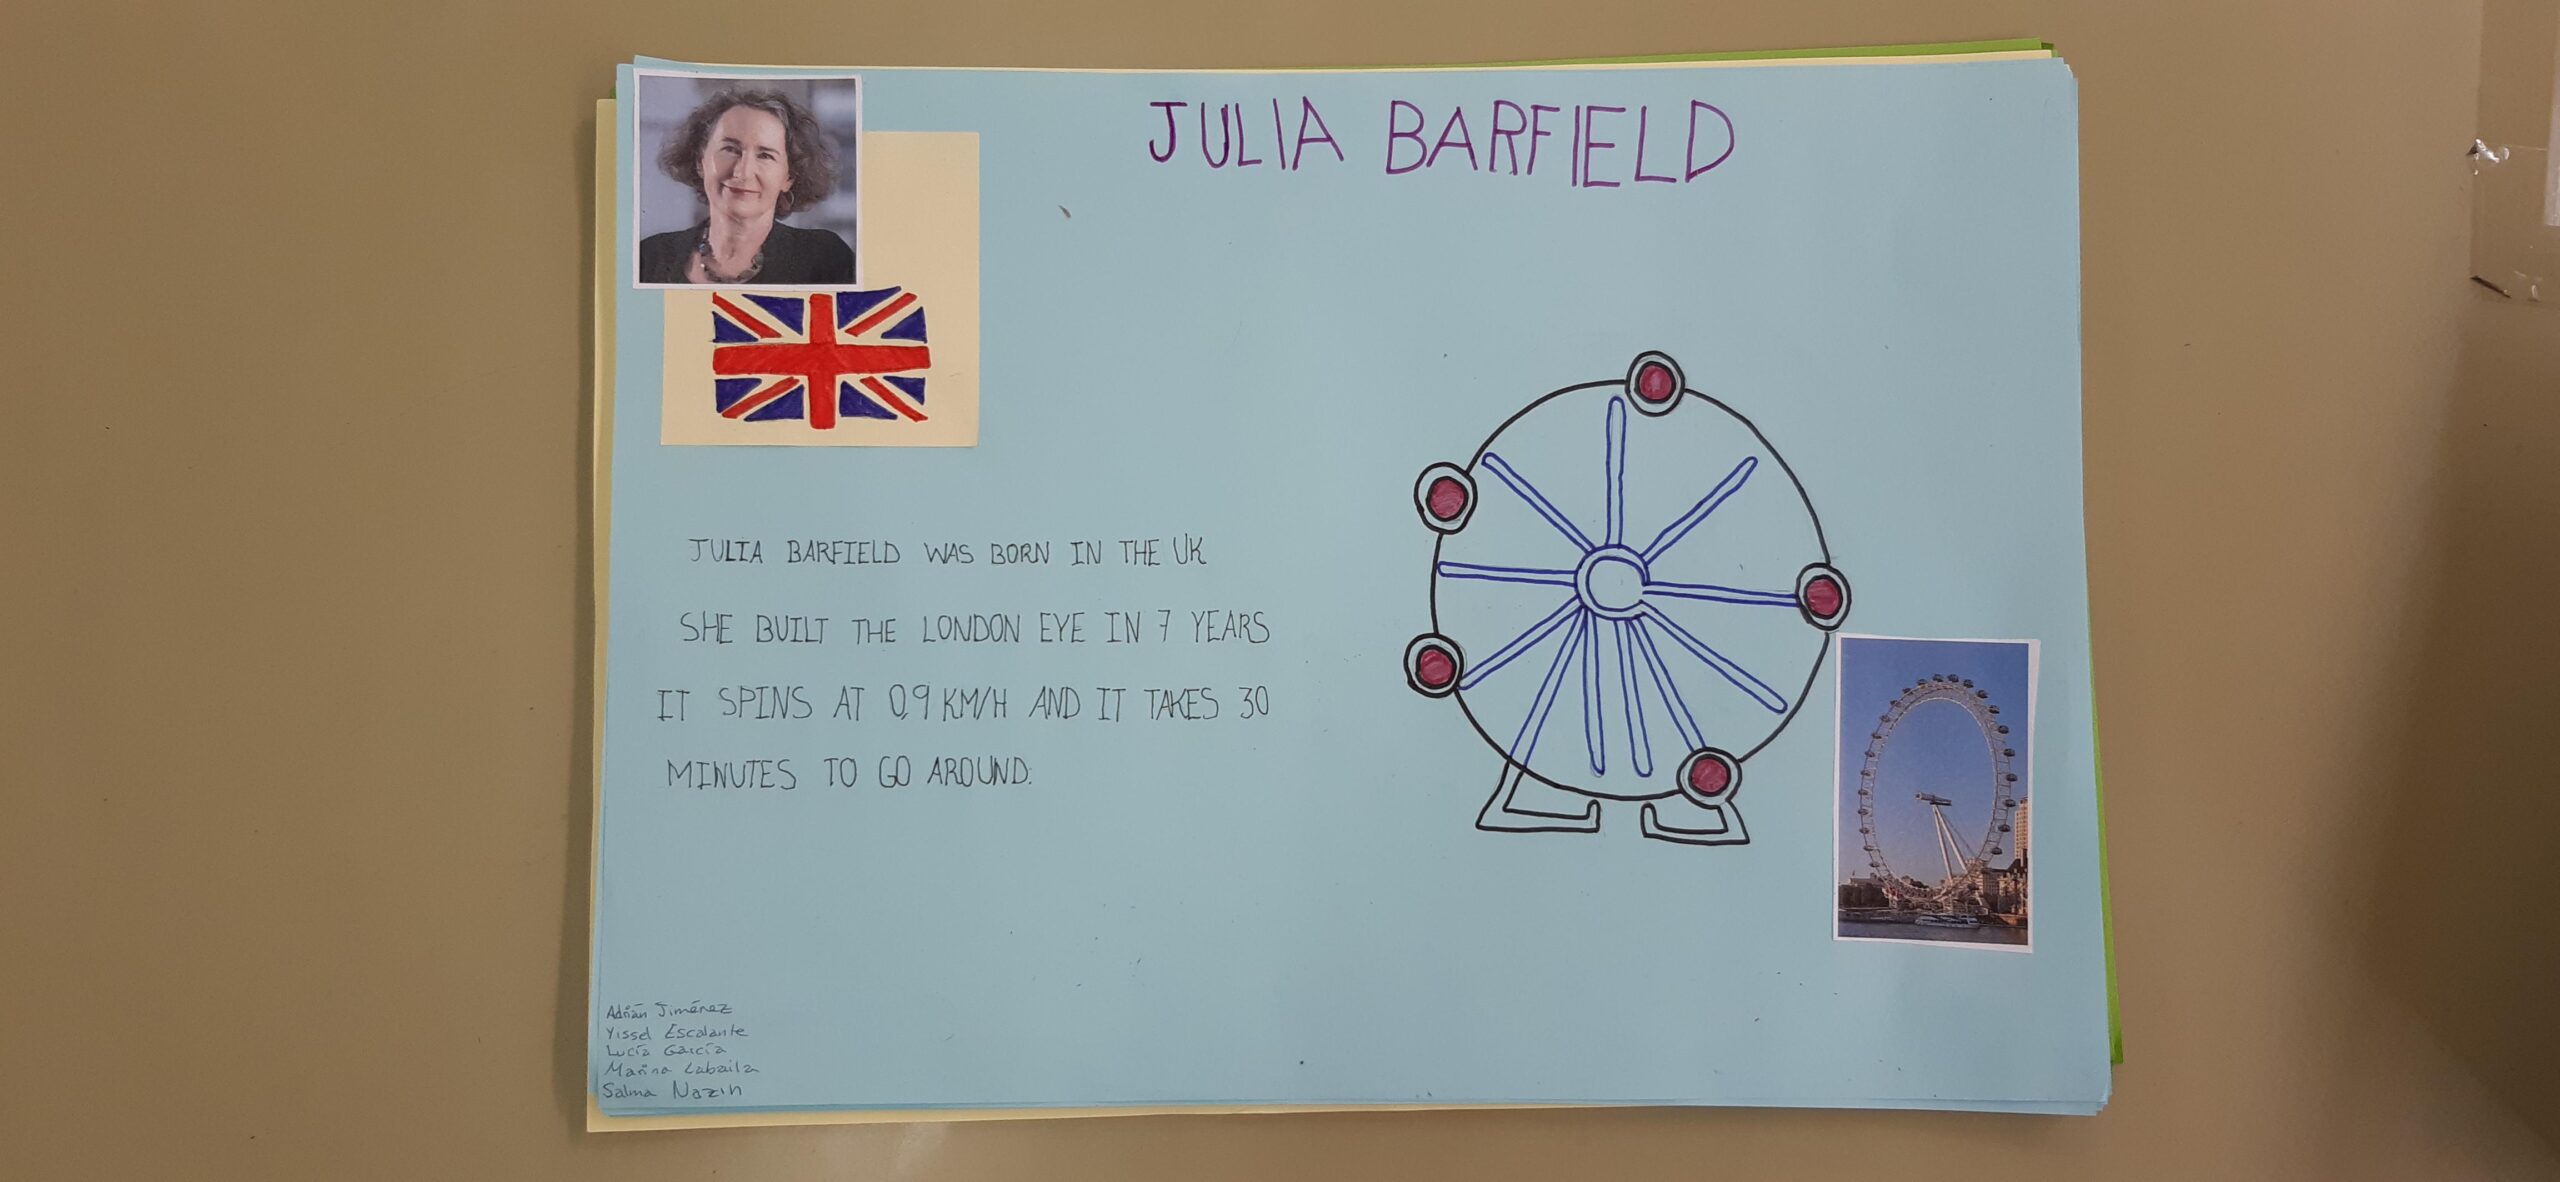 JULIA BARFIELD
JULIA BARFIELD WAS BORN IN THE UK
SHE BUILT THE LONDON EYE IN 7 YEARS
IT SPINS AT 0,9 KM/H AND IT TAKES 30
MINUTES TO GO AROUND.
Adrián Jiménez
Yissel Escalante
Lucía García
Marina Labaila
Salma Nazih